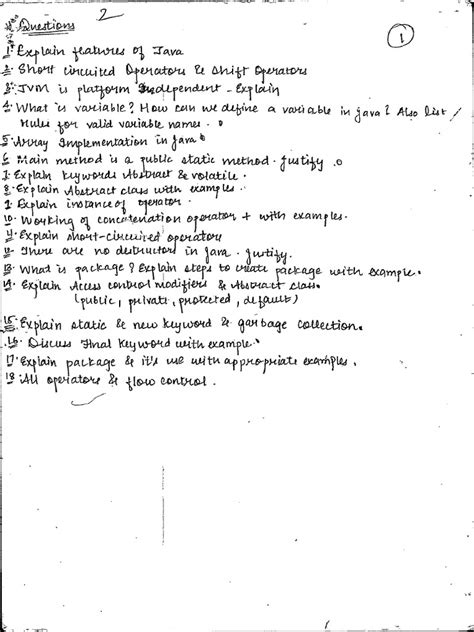 2
Questions
1
1. Explain features of Java
2. Short circuited Operators & Shift Operators
3. JVM is platform Independent - Explain
4. What is variable? How can we define a variable in java? Also list
Rules for valid variable names.
5. Array Implementation in Java
6. Main method is a public static method. Justify.
7. Explain keywords Abstract & volatile.
8. Explain Abstract class with examples.
9. Explain instance of operator.
10. Working of concatenation operator + with examples.
11. Explain short-circuited operators
12. There are no destructors in java. Justify.
13. What is package? Explain steps to create package with example.
14. Explain Access control modifiers & Abstract class.
(public, private, protected, default)
15. Explain static & new keyword & garbage collection.
16. Discuss Final keyword with example.
17. Explain package & it's use with appropriate examples.
18. All operators & flow control.